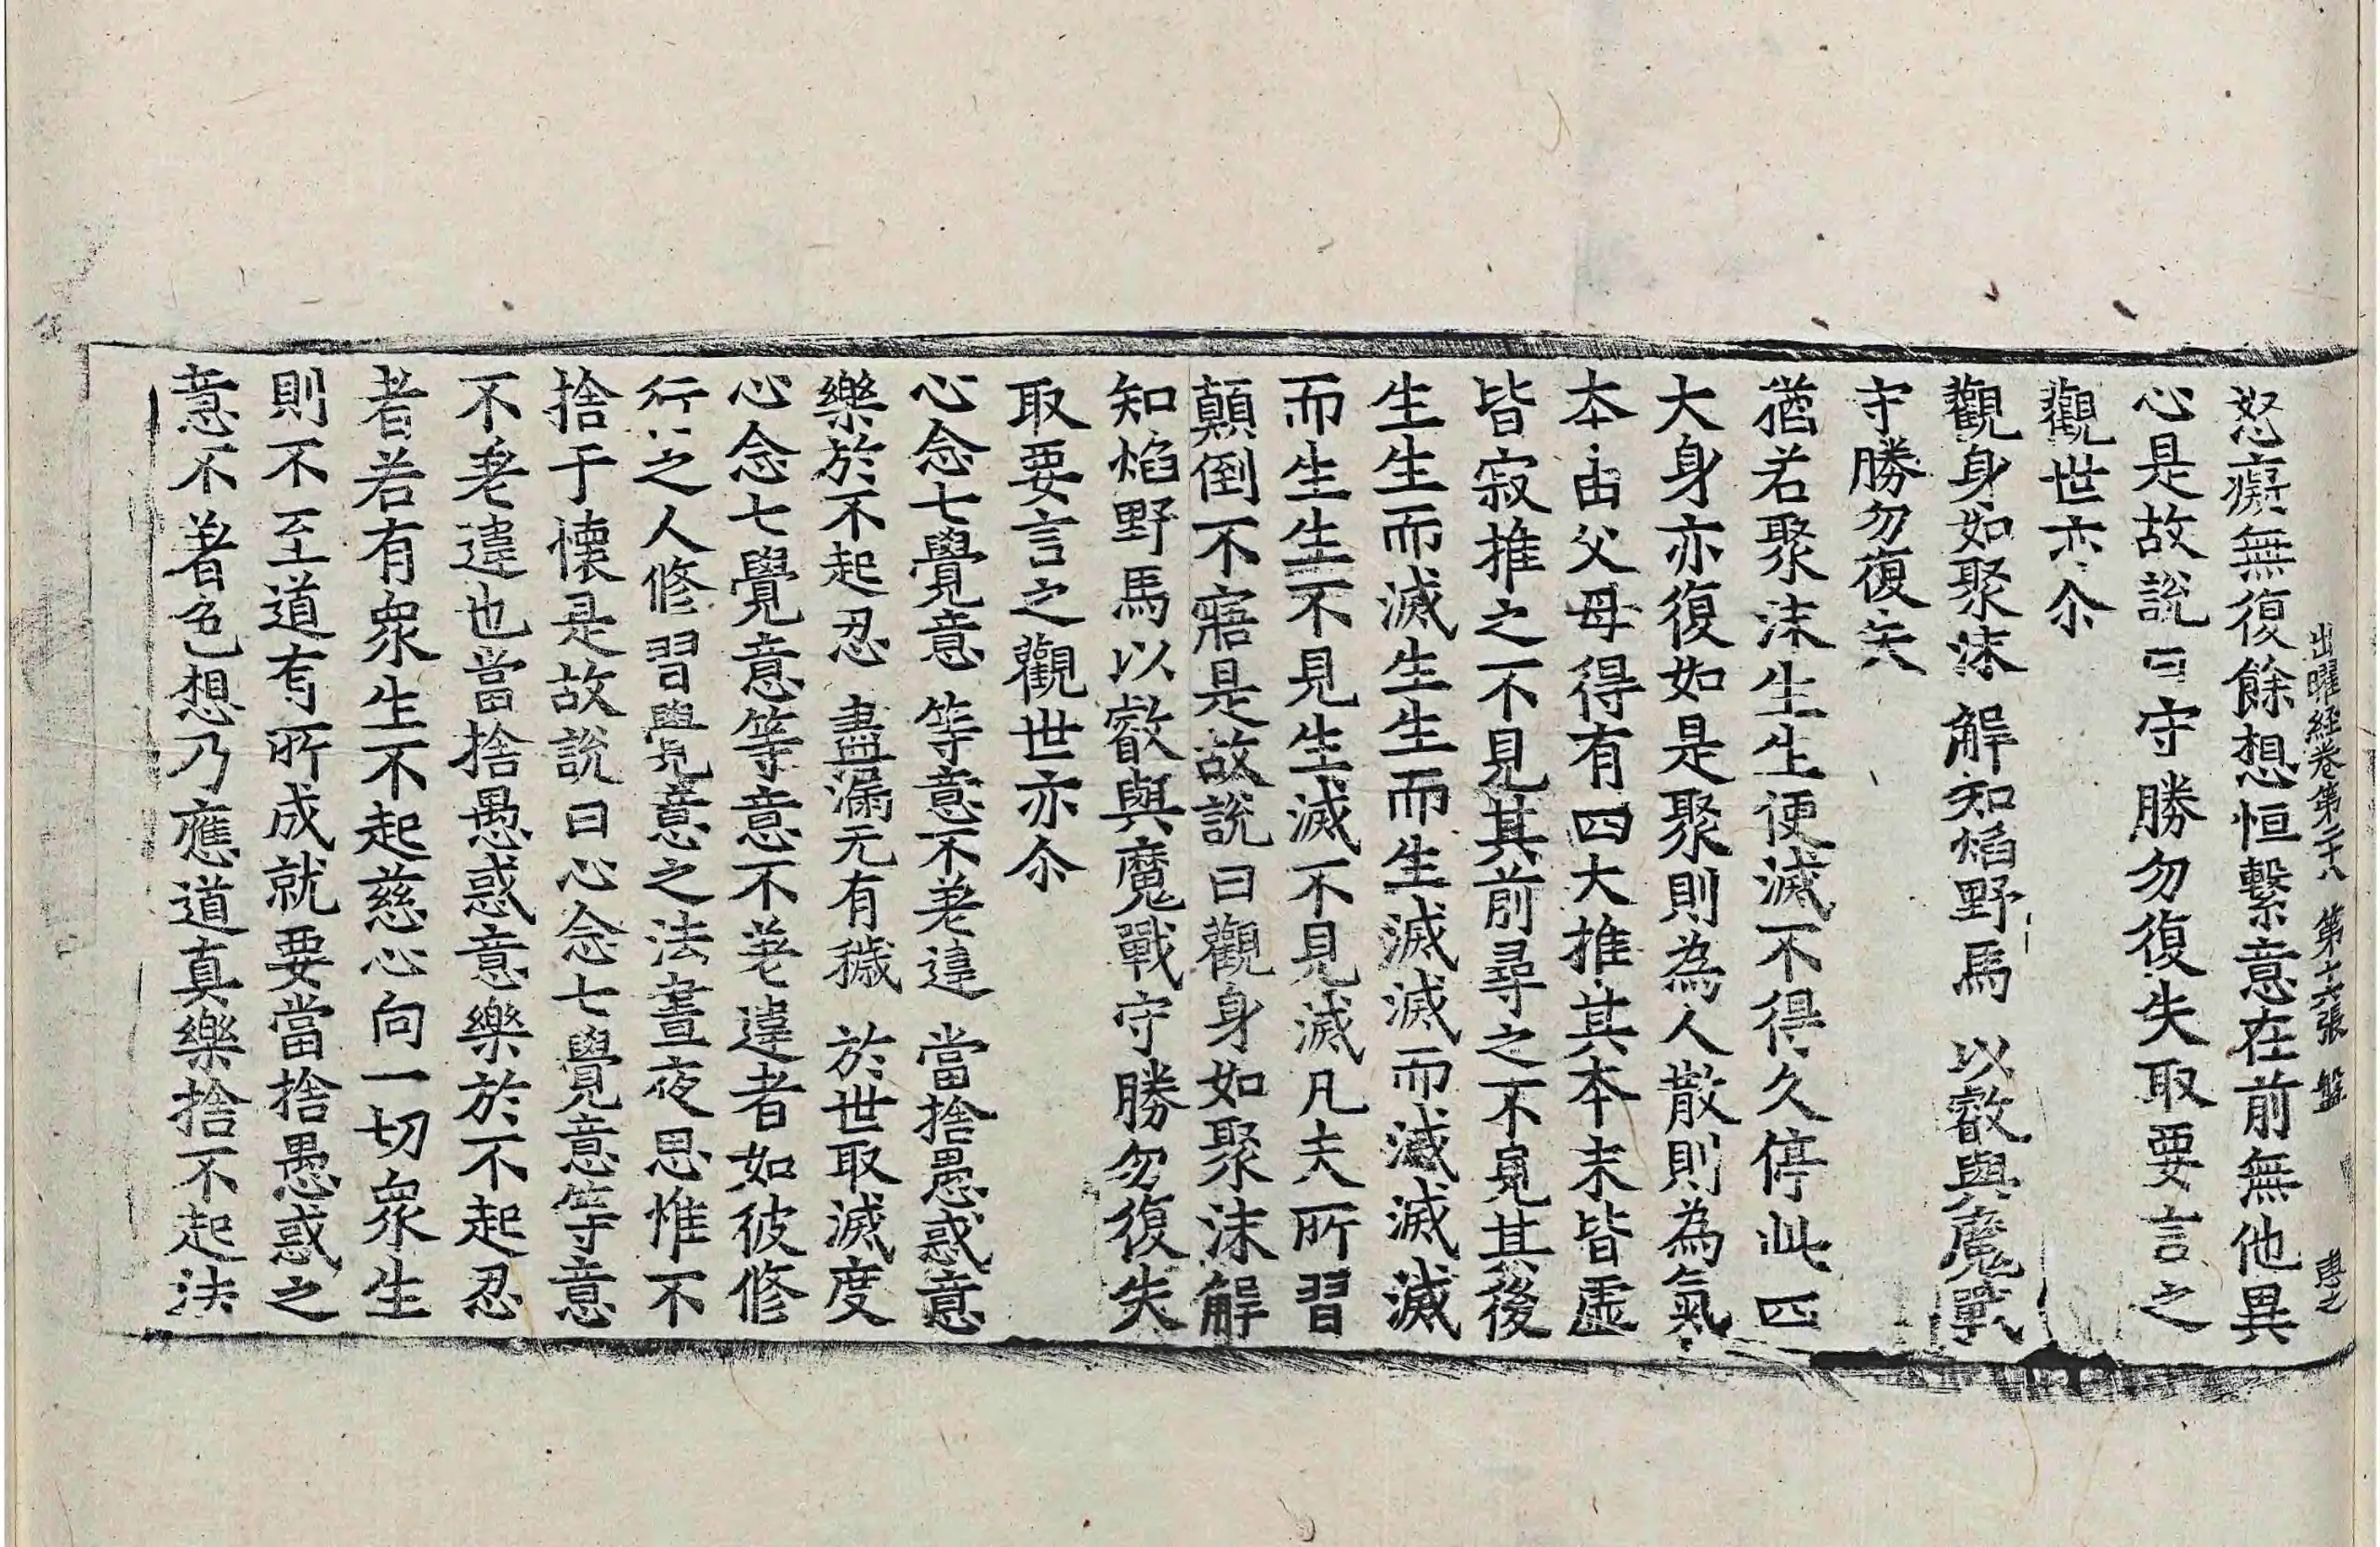 出曜経卷第二十八 第十六張 盤
怒癡無復餘想恒繫意在前無他異
心是故說曰守勝勿復失取要言之
觀世亦尒
觀身如聚沫 解知焰野馬 以叡與魔戰
守勝勿復失
猶若聚沫生生便滅不得久停此四
大身亦復如是聚則為人散則為氣
本由父母得有四大推其本末皆虛
皆寂推之不見其前尋之不見其後
生生而滅生生而生滅滅而滅滅滅
而生生不見生滅不見滅凡夫所習
顛倒不寤是故說曰觀身如聚沫解
知焰野馬以叡與魔戰守勝勿復失
取要言之觀世亦尒
心念七覺意 等意不差違 當捨愚惑意
樂於不起忍 盡漏无有穢 於世取滅度
心念七覺意等意不差違者如彼修
行之人修習覺意之法晝夜思惟不
捨于懷是故說曰心念七覺意等意
不差違也當捨愚惑意樂於不起忍
者若有衆生不起慈心向一切衆生
則不至道有所成就要當捨愚惑之
意不著色想乃應道真樂捨不起法